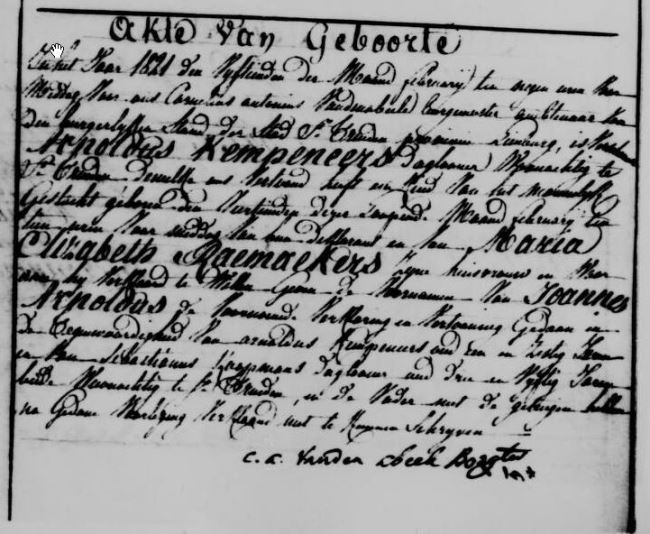 Akte Van Geboorte
In het Jaar 1821 den Vyftienden der Maand february ten negen uren Voor
Middag Voor ons Cornelius antonius Vandenabeele burgemeester Van
Den burgerlyken Stand der Stad St. Truiden provincie Limburg, is
Arnoldus Kempeneers Daglooner Woonachtig te
St. Truiden Dewelke ons Verkend heeft een Kind Van het mannelyk
Geslacht geboren den Veertienden dezer Loopende Maand february ten
uren Voor middag Van hem declarant en Van Maria
Elizabeth Raemaekers Zyne huisvrouw en Waar
aan hy Verklaard te Willen Geven de Voornamen Van Joannes
Arnoldus de Voornoemde Verklaring en Vertooning Gedaan in
de Tegenwoordigheid Van arnoldus Kempeneers oud een en Zestig Jaren
en Van Sebastianus Koopmans Daglooner oud dry en Vyftig Jaren
beide Woonachtig te St. Truiden, en de Vader met de getuigen hebben
na Gedane Voorlezing Verklaard niet te Kunnen Schryven
c. a. Vanden abeele